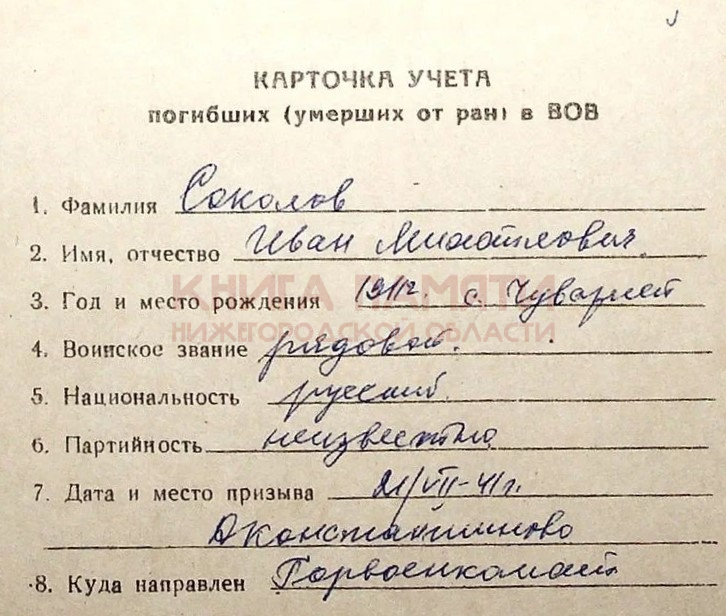 КАРТОЧКА УЧЕТА
погибших (умерших от ран) в ВОВ
1. Фамилия Соколов
2. Имя, отчество Иван Михайлович
3. Год и место рождения 1911г. с. Чуварлей
КНИГА ПАМЯТИ
НИЖЕГОРОДСКОЙ ОБЛАСТИ
4. Воинское звание рядовой.
5. Национальность русский.
6. Партийность неизвестно
7. Дата и место призыва 21/VII-41г.
Д Константиново
8. Куда направлен Горвоенкомат